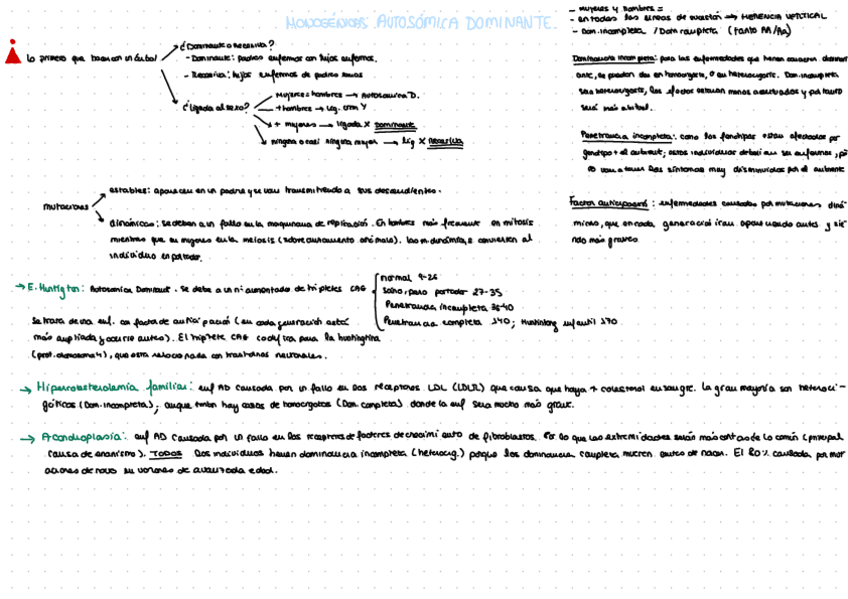 MONOGÉNICAS: AUTOSÓMICA DOMINANTE.
- mujeres y hombres =
- en todas las líneas de sucesión → HERENCIA VERTICAL
- Dom. incompleta / Dom completa (tanto AA/Aa)
Lo primero que hacer con un árbol
¿Dominante o recesiva?
- Dominante: padres enfermos con hijos enfermos.
- Recesiva: hijos enfermos de padres sanos
¿Ligada al sexo?
Mujeres = hombres → Autosómica D.
+ hombres → Lig. crm Y
+ mujeres → ligada X Dominante
ninguna o casi ninguna mujer → lig X Recesiva
Dominancia incompleta: para las enfermedades que tienen carácter domin
ante, se pueden dar en homocigoto, o en heterocigoto. Dom. incompleta
son heterocigoto, los efectos estarán menos acentuados y por tanto
será más
Penetrancia incompleta: como los fenotipos están afectados por
genotipo + el ambiente; estos individuos deberían ser enfermos, pe
ro van a tener los síntomas muy disminuidos por el ambiente
Factor anticipación: enfermedades causadas por mutaciones diná
micas, que en cada generación irán apareciendo antes y sie
ndo más graves
mutaciones
estables: aparecen en un padre y se van transmitiendo a sus descendientes.
dinámicas: se deben a un fallo en la maquinaria de replicación. En hombres más frecuente en mitosis
mientras que en mujeres en la meiosis (sobrecruzamiento anómalo). Las m. dinámicas convierten al
individuo en portador.
→ E. Huntington: Autosómica Dominant. Se debe a un nº aumentado de tripletes CAG
normal 9-26
Sano, pero portador 27-35
Penetrancia incompleta 36-40
Penetrancia completa >40; Huntintong infantil >70
Se trata de una enf. con factor de anticipación (en cada generación estará
más ampliada y ocurre antes). El triplete CAG codifica para la huntingtina
(prot. cromosoma 4), que está relacionada con trastornos neuronales.
→ Hipercolesterolemia familiar: enf AD causada por un fallo en los receptores LDL (LDLR) que causa que haya + colesterol en sangre. La gran mayoría son heteroci-
góticos (Dom. incompleta); aunque también hay casos de homocigotos (Dom. completa) donde la enf será mucho más grave.
→ Acondroplasia: enf AD causada por un fallo en los receptores de factores de crecimiento de fibroblastos. Por lo que las extremidades serán más cortas de lo común (principal
causa de enanismo). TODOS los individuos tienen dominancia incompleta (heterocig.) porque los dominancia completa mueren antes de nacer. El 80% causada por mut
aciones de novo en varones de avanzada edad.